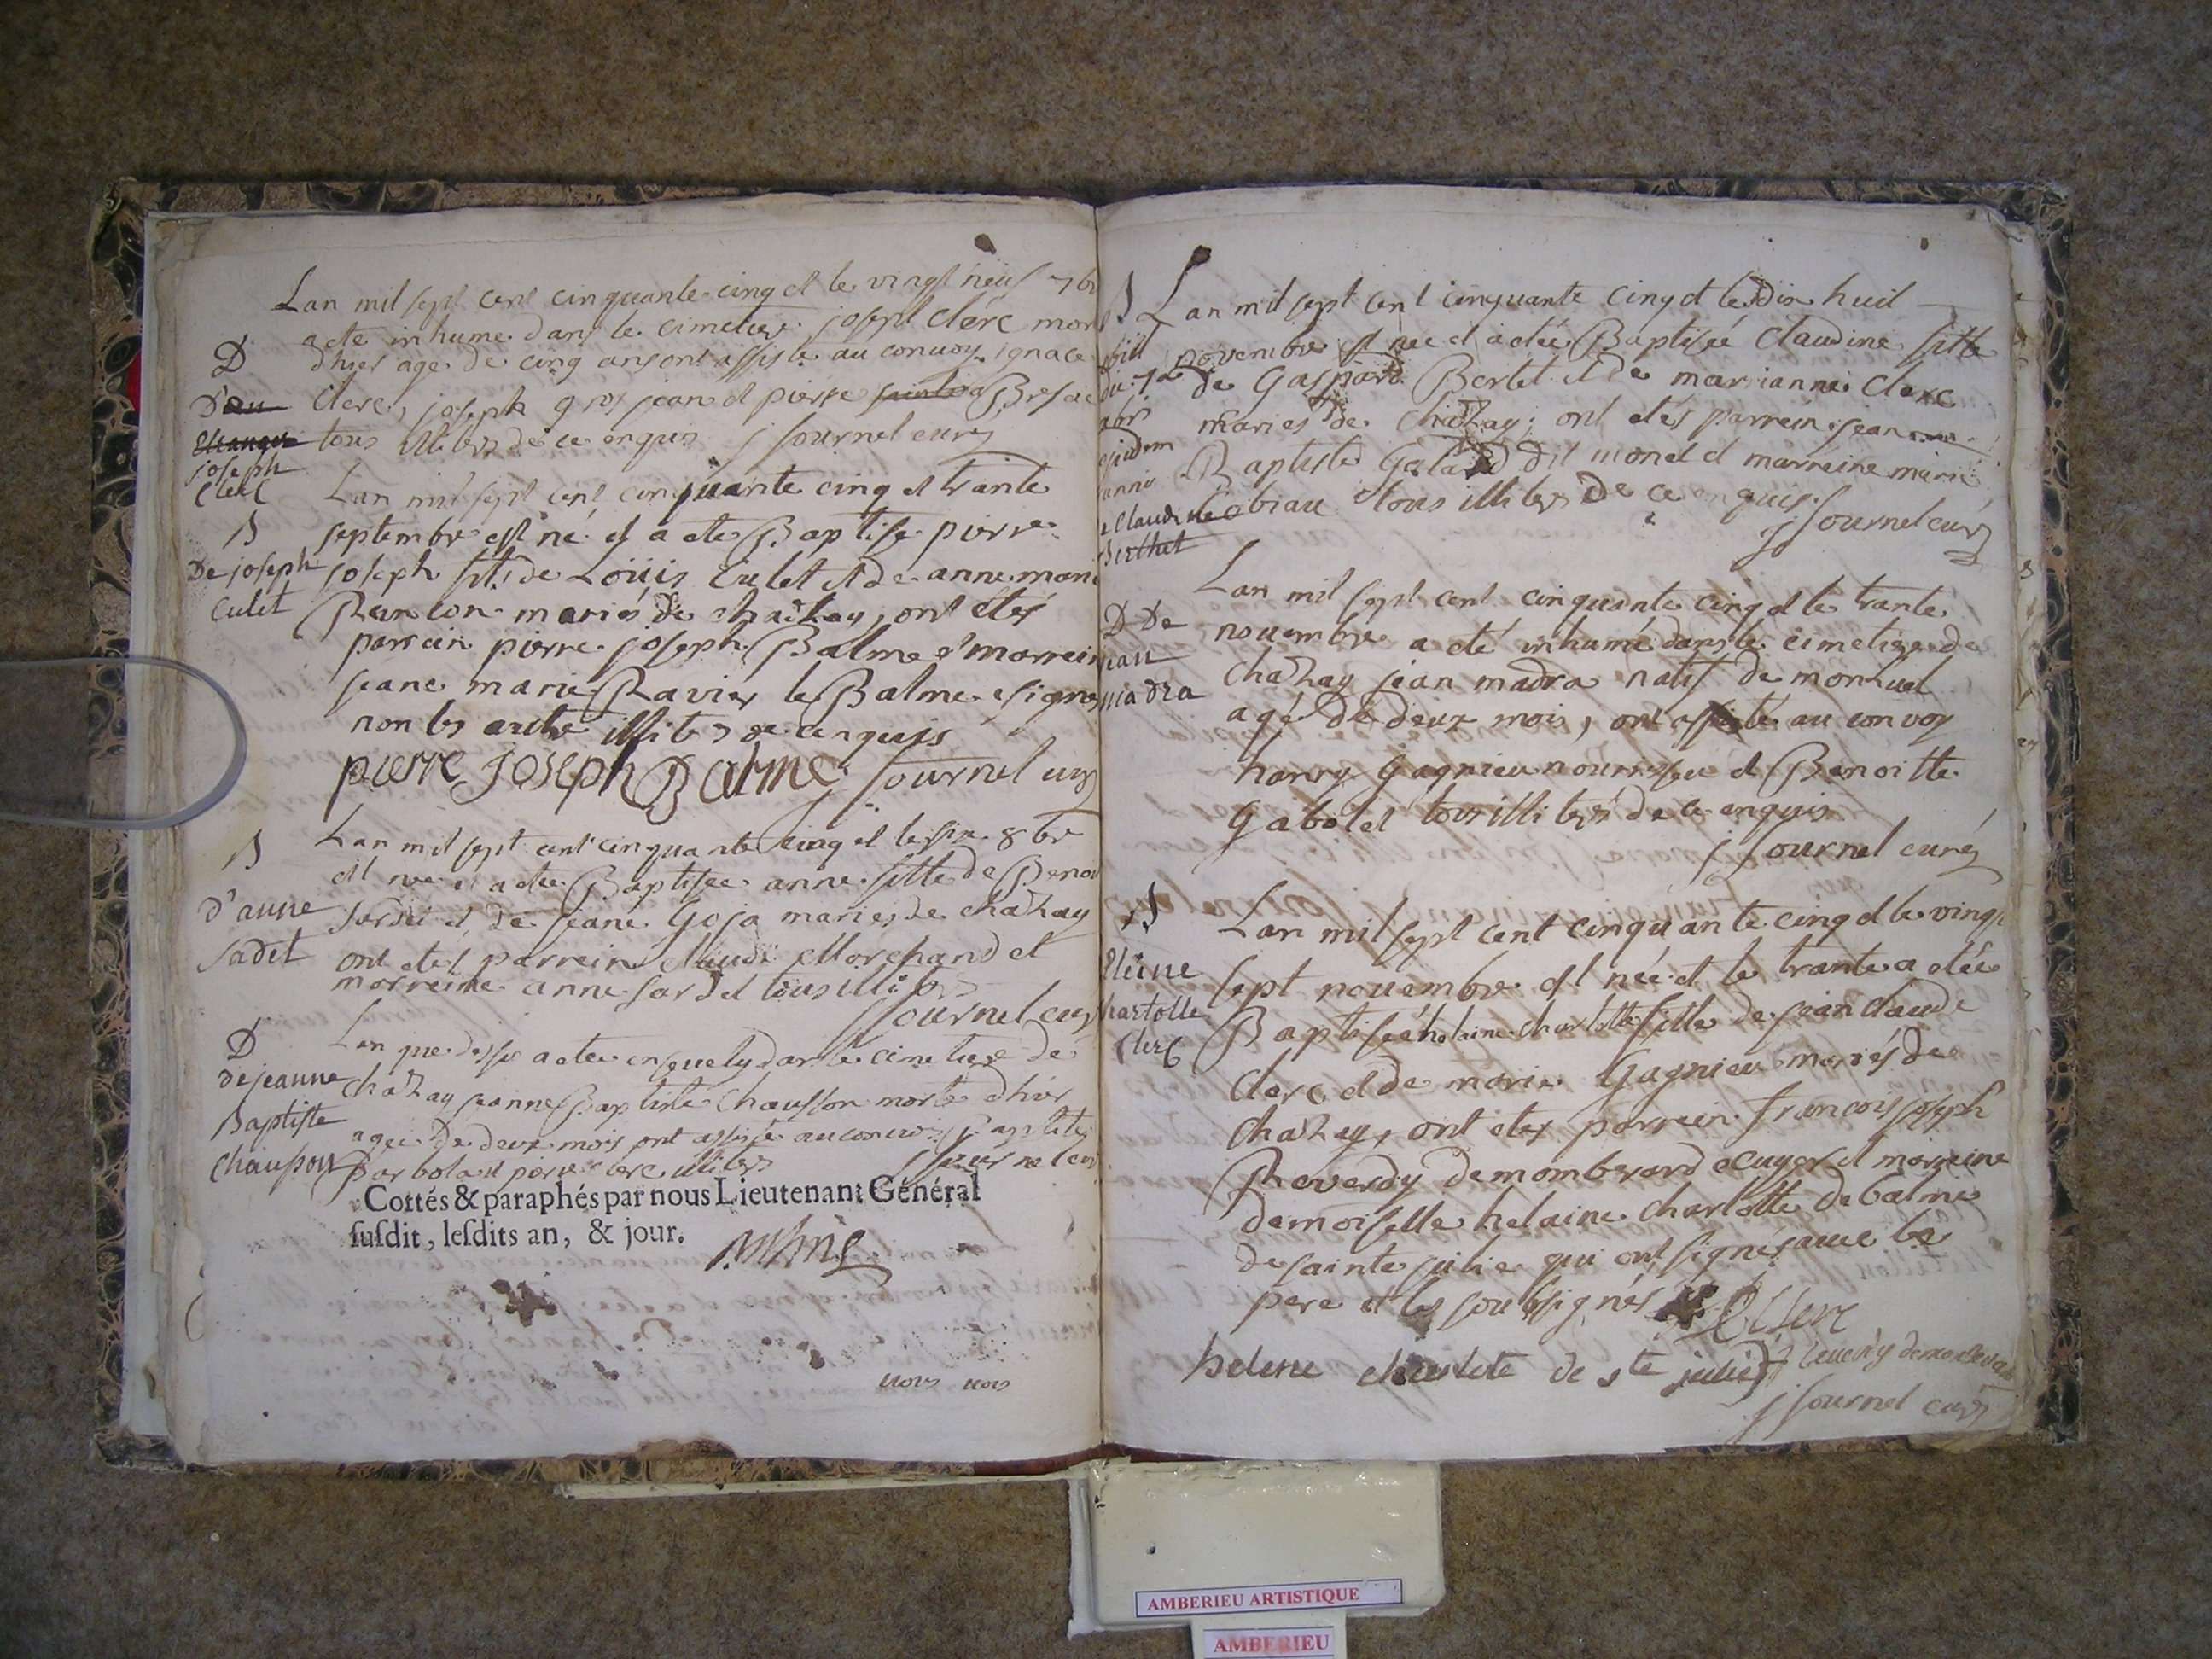 Lan mil sept cent cinquante cinq et le vingt neuf 7br
D
a ete inhume dans le cimetiere joseph clerc mort
dhier age de cinq ans ont assiste au convoy ignace
clerc, joseph gros jean et pierre
Etranger
tous illiters de ce enquis j fournel curé
joseph
clerc
Lan mil sept cent cinquante cinq et trante
B
septembre est né et a ete Baptise pierre
De joseph
joseph fils de Loüis Culet et de anne marie
culet
Rancon mariés de chaZay, ont étés
parrein pierre joseph Balme et marreine
jeane marie Ravier le Balme a signe
non les autre illiters de ce enquis
pierre joseph Balme j fournel curé
Lan mil sept cent cinquante cinq et le six 8br
B
est née et a etee Baptisee anne fille de Benoi
d'anne
et de jeane Goja maries de chaZay
sadet
ont etes parrein claude Marchand et
marreine anne sardet tous illiters
j fournel curé
D
Lan que dessus a etee ensevely dans le cimetiere de
de jeanne
chaZay jeanne Baptiste chausson morte dhier
Baptiste
agee de deux mois ont assisté au convoi Baptiste
chausson
Barbolat pierre clerc illiters j fournel curé
Cottés & paraphés par nous Lieutenant Général
susdit, lesdits an, & jour.
nous nous
B
Lan mil sept cent cinquante cinq et le dix huit
novembre est née et a etée Baptisée Claudine fille
de Gaspard Bertet et de marianne clerc
mariés de ChaZay, ont étés parrein jean
ejusdem
anni
Baptiste Galand dit monet et marreine marie
Claudine
Cobiau tous illiters de ce enquis.
Berthet
j fournel curé
Lan mil sept cent cinquante cinq et le trante
D De
novembre a eté inhumé dans le cimetiere de
jean
chaZay jean madra natif de monluel
madra
agé de deux mois, ont assisté au convoy
harry Gagnieu nourrisseu et Benoitte
Gabolet tous illiters de ce enquis
j fournel curé
B
Lan mil sept cent cinquante cinq et le vingt
Eleine
sept novembre est née et le trante a etée
chartolle
Baptisée helaine charlotte fille de jean claude
clerc
clerc et de marie Gagnieu mariés de
chaZay, ont etés parrein francois joseph
Reverdy de momberard ecuyer et marreine
demoiselle helaine charlotte de Balme
de sainte julie qui ont signés avec le
pere et les soubsignés Clerc
helene charlote de ste julie
j fournel curé
AMBERIEU ARTISTIQUE
AMBERIEU